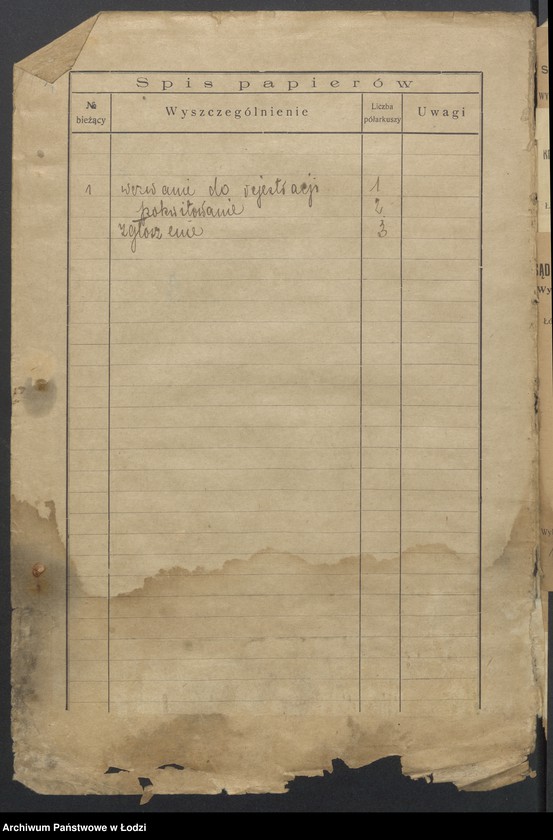 Spis papierów
№ bieżący
Wyszczególnienie
Liczba półarkuszy
Uwagi
1 wezwanie do rejestracji 1
pokwitowanie 2
zgłoszenie 3
Archiwum Państwowe w Łodzi